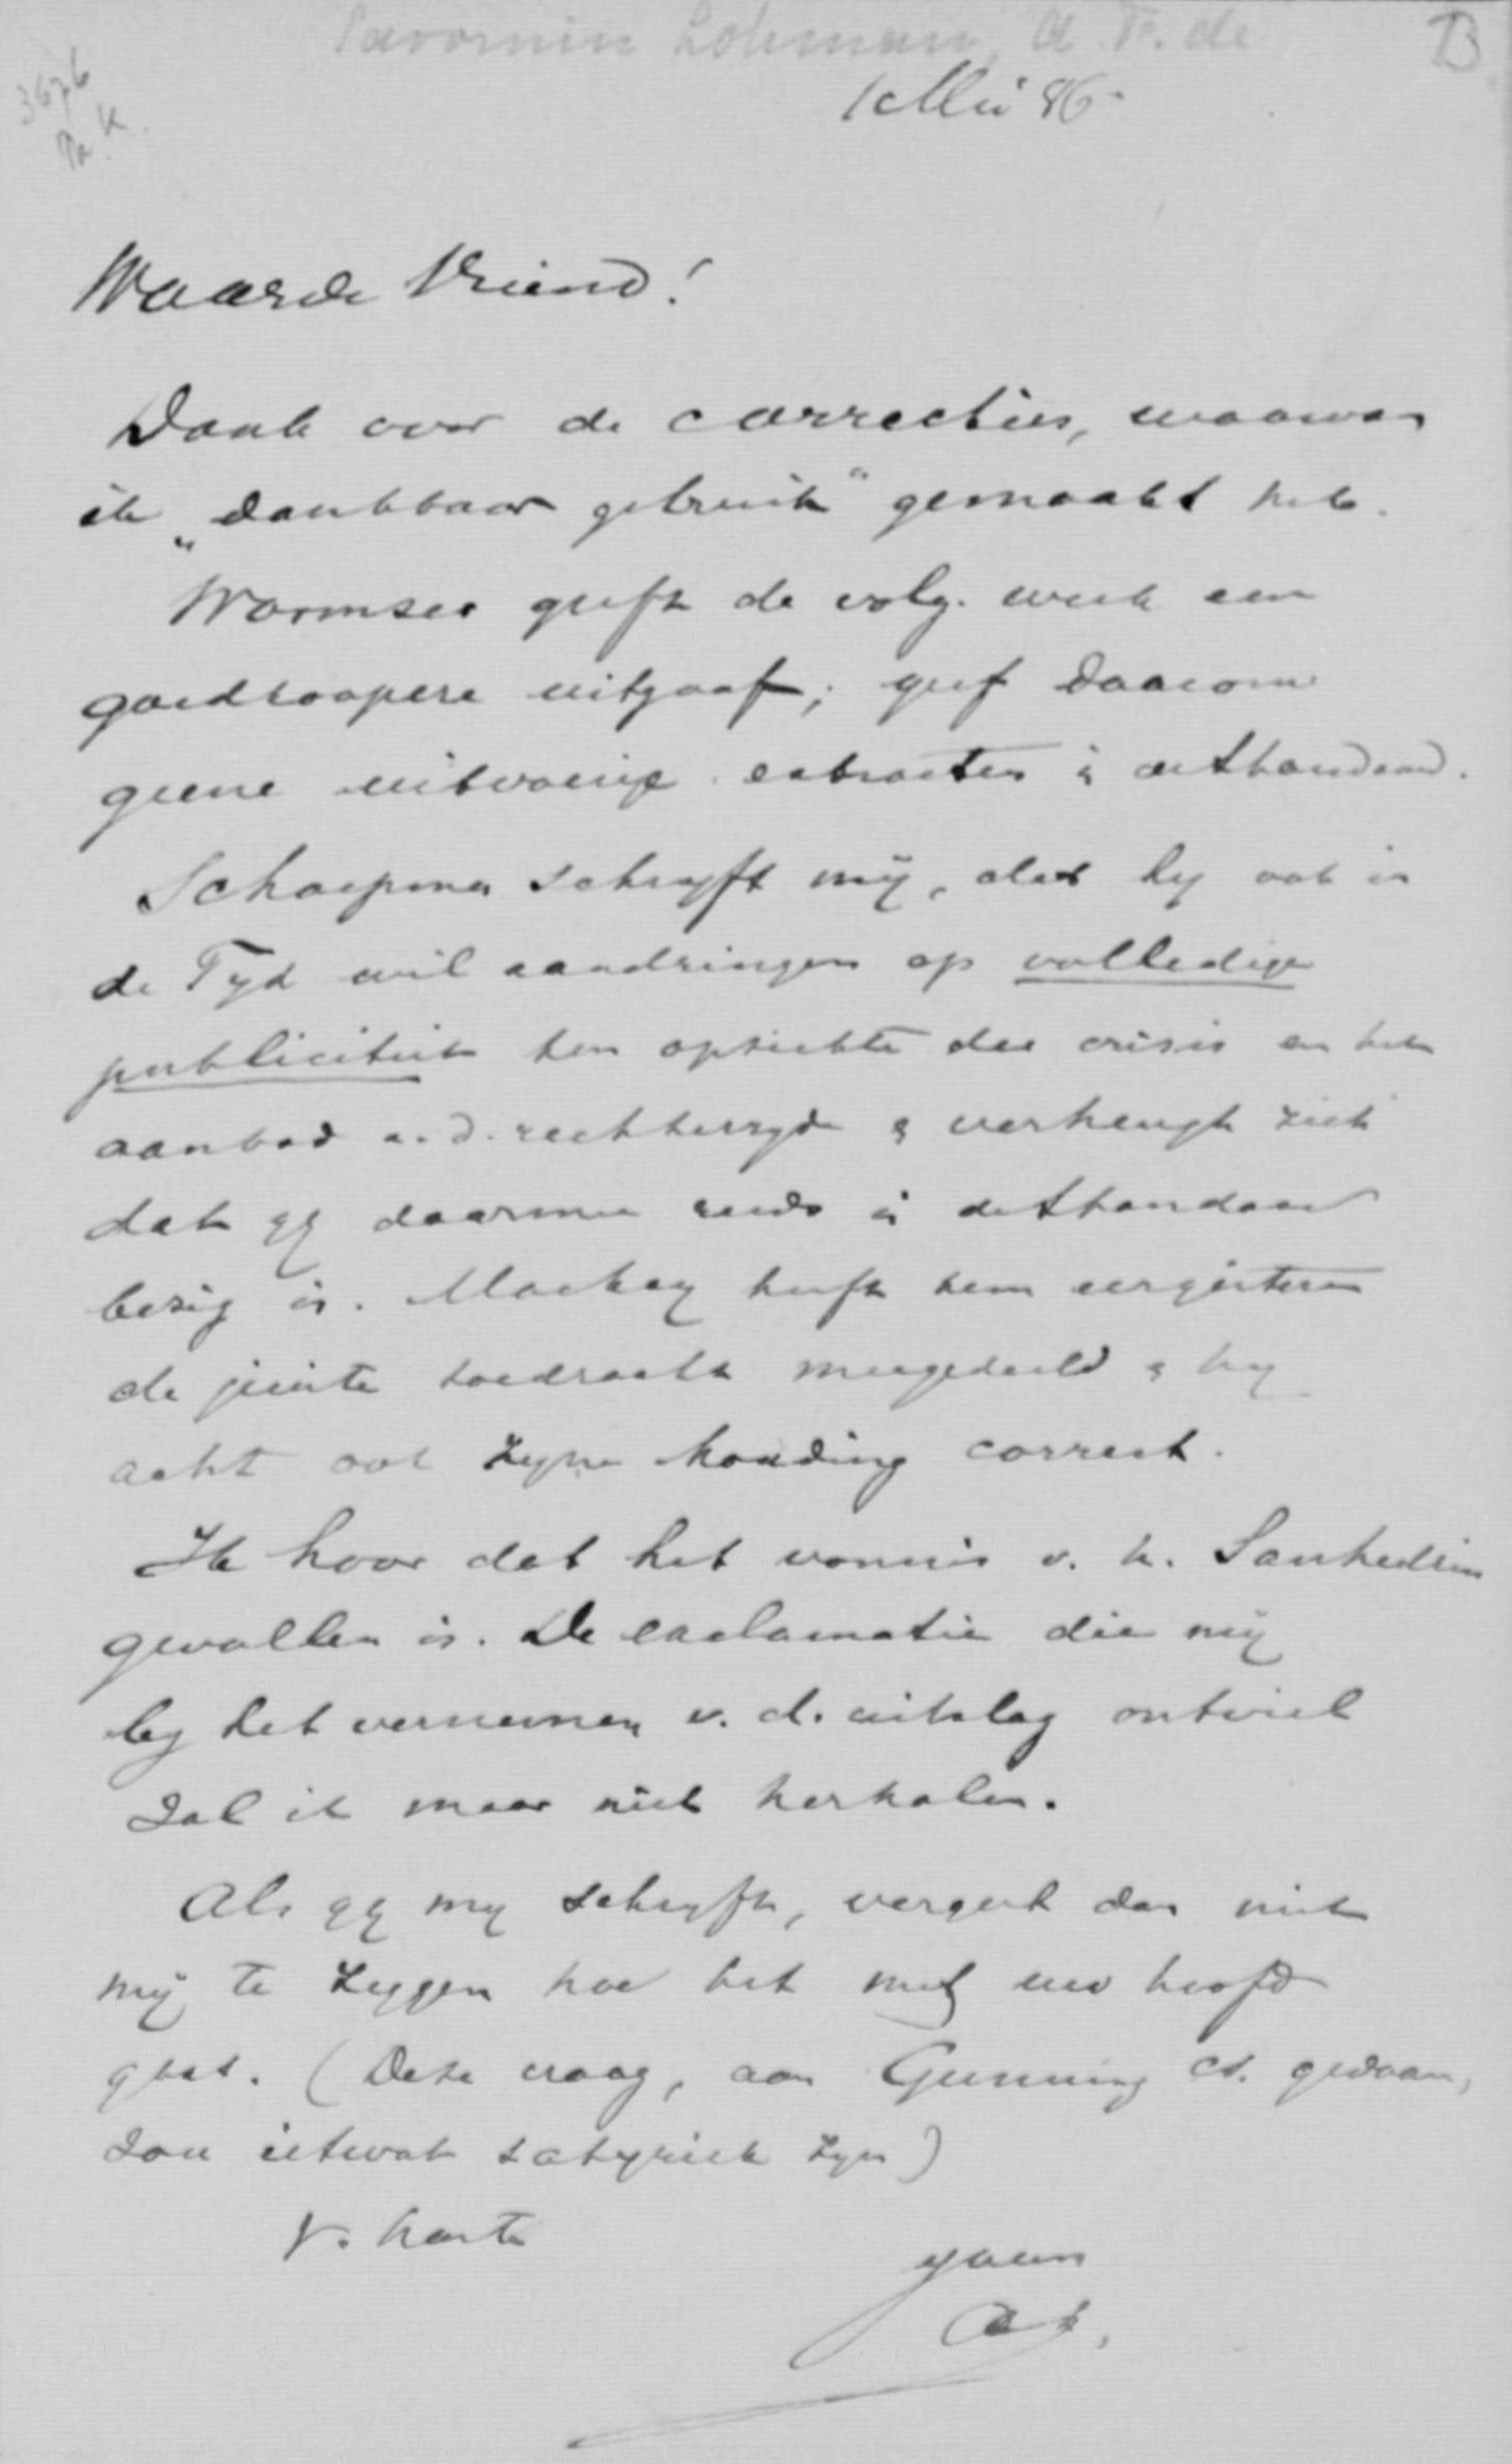 Savornin Lohman, A. F. de
B
3676
Pa K.
1 Mei 86.
Waarde Vriend!
Dank voor de correcties, waarvan
ik „dankbaar gebruik" gemaakt heb.
Wormser geeft de volg. week een
goedkoopere uitgaaf; geef daarom
geene uitvoerige extracten in de Standaard.
Schaepman schryft mij, dat hy ook in
de Tyd wil aandringen op volledige
publiciteit ten opzichte der crisis en het
aanbod a. d. rechterzyde & verheugt zich
dat gy daarmee reeds in de Standaard
bezig is. Mackay heeft hem eergisteren
de juiste toedracht meegedeeld & hy
acht ook zyne houding correct.
Ik hoor dat het vonnis v. h. Sanhedrin
gevallen is. De exclamatie die mij
by het vernemen v. d. uitslag ontviel
zal ik maar niet herhalen.
Als gy my schryft, vergeet dan niet
mij te zeggen hoe het met uw hoofd
gaat. (Deze vraag, aan Gunning gedaan,
zou ietwat satyriek zyn)
v. harte